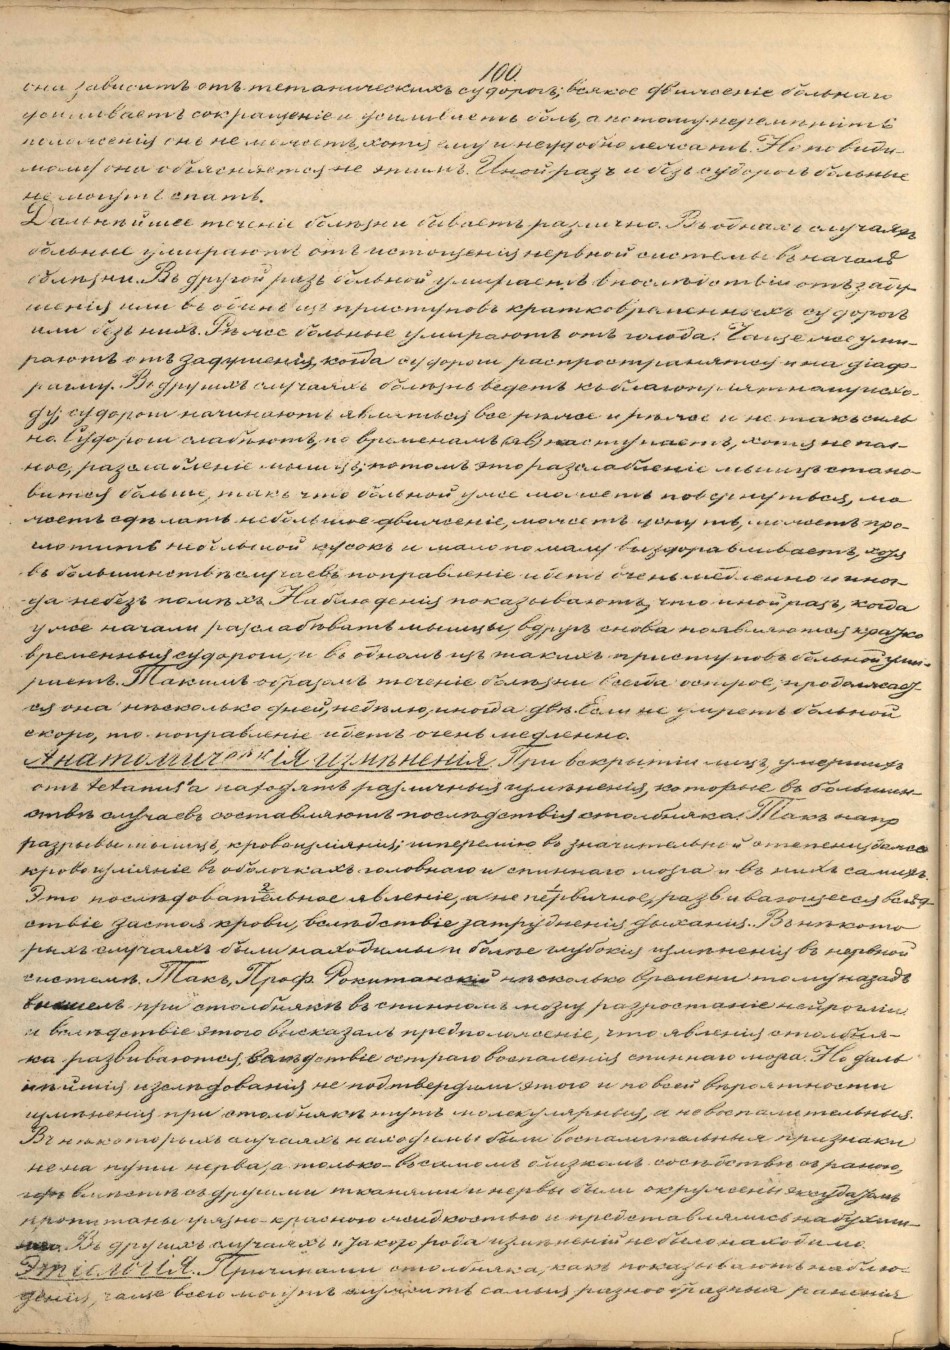 100.
она зависитъ отъ тетаническихъ судорогъ; всякое движеніе больнаго
усиливаетъ сокращеніе и усиливаетъ боль, а потому перемѣнить
положенія онъ не можетъ, хотя ему и неудобно лежать. Но повиди-
мому она объясняется не этимъ. Иной разъ и безъ судорогъ больные
не могутъ спать.
Дальнѣйшее теченіе болѣзни бываетъ различно. Въ однихъ случаяхъ
больные умираютъ отъ истощенія нервной системы въ началѣ
болѣзни. Въ другой разъ больной умираетъ впослѣдствіи отъ заду-
шенія или въ одинъ изъ приступовъ кратковременныхъ судорогъ
или безъ нихъ. Рѣже больные умираютъ отъ голода. Чаще же уми-
раютъ отъ задушенія, когда судороги распространятся и на діаф-
рагму. Въ другихъ случаяхъ болѣзнь ведетъ къ благопріятному исхо-
ду; судороги начинаютъ являться все рѣже и рѣже и не такъ силь
но. Судороги слабѣютъ, по временамъ наступаетъ, хотя не пол-
ное, разслабленіе мышцъ; потомъ это разслабленіе мышцъ стано-
вится больше, такъ что больной уже можетъ повернуться, мо
жетъ сдѣлать небольшое движеніе, можетъ уснуть, можетъ про-
глотить небольшой кусокъ и мало по малу выздоравливаетъ, хотя
въ большинствѣ случаевъ поправленіе идетъ очень медленно и иног-
да не безъ помѣхъ. Наблюденія показываютъ, что иной разъ, когда
уже начали разслабѣвать мышцы, вдругъ снова появляются кратко
временныя судороги, и въ одномъ изъ такихъ приступовъ больной уми-
раетъ. Такимъ образомъ теченіе болѣзни всегда острое; продолжает-
ся она нѣсколько дней, недѣлю, иногда двѣ. Если не умретъ больной
скоро, то поправленіе идетъ очень медленно.
Анатомическія измѣненія. При вскрытіи лицъ, умершихъ
отъ tetanus'a находятъ различныя измѣненія, которые въ большин-
ствѣ случаевъ составляютъ послѣдствія столбняка. Такъ напр
разрывы мышцъ, кровоизліянія; гиперемію въ значительной степени, даже
кровоизліяніе въ оболочкахъ головнаго и спиннаго мозга и въ нихъ самихъ.
Это послѣдовательное явленіе, а не первичное, развивающееся вслѣд-
ствіе застоя крови, вслѣдствіе затрудненія дыханія. Въ нѣкото
рыхъ случаяхъ были находимы и болѣе глубокія измѣненія въ нервной
системѣ. Такъ, Проф. Рокитанскій нѣсколько времени тому назадъ
при столбнякѣ въ спинномъ мозгу разростаніе нейрогліи
и вслѣдствіе этого высказалъ предположеніе, что явленія столбня-
ка развиваются вслѣдствіе остраго воспаленія спиннаго мозга. Но даль
нѣйшія изслѣдованія не подтвердили этого и по всей вѣроятности
измѣненія при столбнякѣ тутъ молекулярныя, а не воспалительныя.
Въ нѣкоторыхъ случаяхъ находимы были воспалительныя признаки
не на пути нерва, а только въ самомъ близкомъ сосѣдствѣ съ раною,
гдѣ вмѣстѣ съ другими тканями и нервы были окружены эксудатомъ
пропитаны грязно-красною жидкостью и представлялись набухши-
Въ другихъ случаяхъ и такого рода измѣненій не было находимо.
Этіологія. Причинами столбняка, какъ показываютъ наблю-
денія, чаще всего могутъ служить самыя разнообразныя раненія